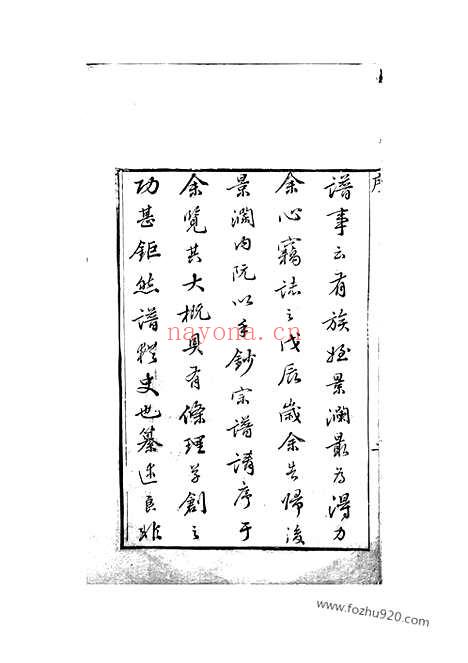 序
譜事云有族姪景瀾最為得力
余心竊誌之戊辰歲余告歸後
景瀾內阮以手鈔宗譜請序于
余覽其大概具有條理草創之
功甚鉅然譜猶史也纂述良非
nayona.cn
www.fozhu920.com